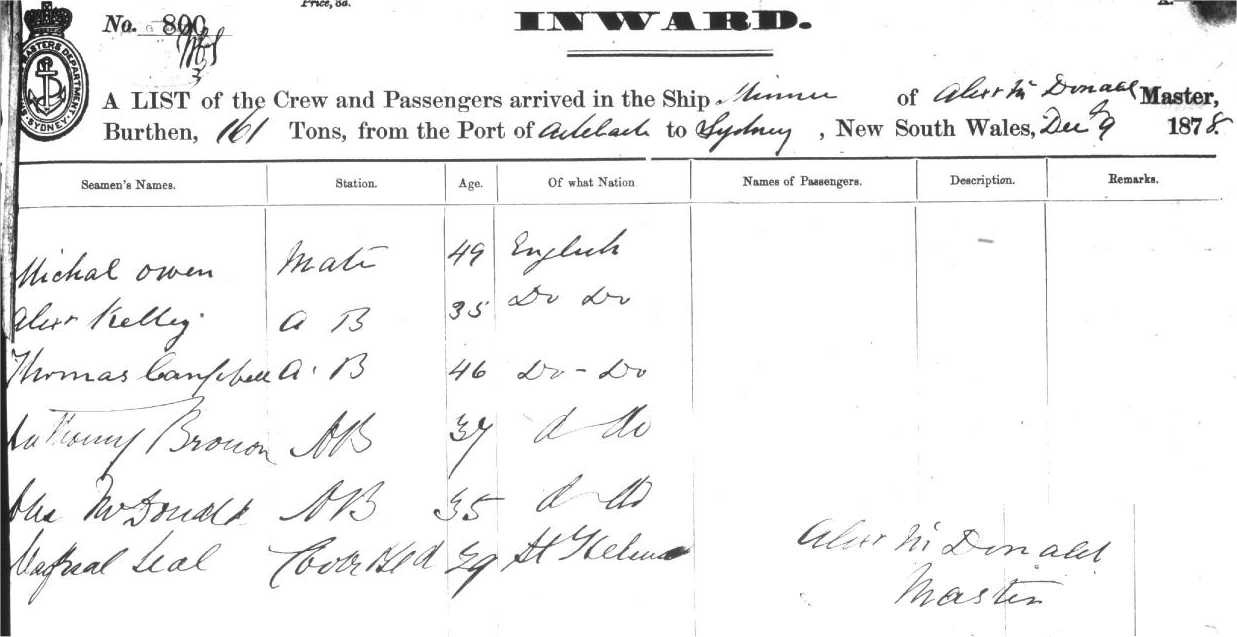 Price, 3d.
No. 800
INWARD.
MASTERS DEPARTMENT SYDNEY
A LIST of the Crew and Passengers arrived in the Ship of Alexr Mc Donald Master,
Burthen, 161 Tons, from the Port of to Sydney, New South Wales, Dec 9 1878.
Seamen's Names. Station. Age. Of what Nation Names of Passengers. Description. Remarks.
Michal Owen Mate 49 English
Alexr Kelley A B 35 Do Do
Thomas Campbell A. B 46 Do - Do
Anthony Brown AB 37 d do
McDonald AB 35 d do
39 St Helena
Alexr Mc Donald
Master